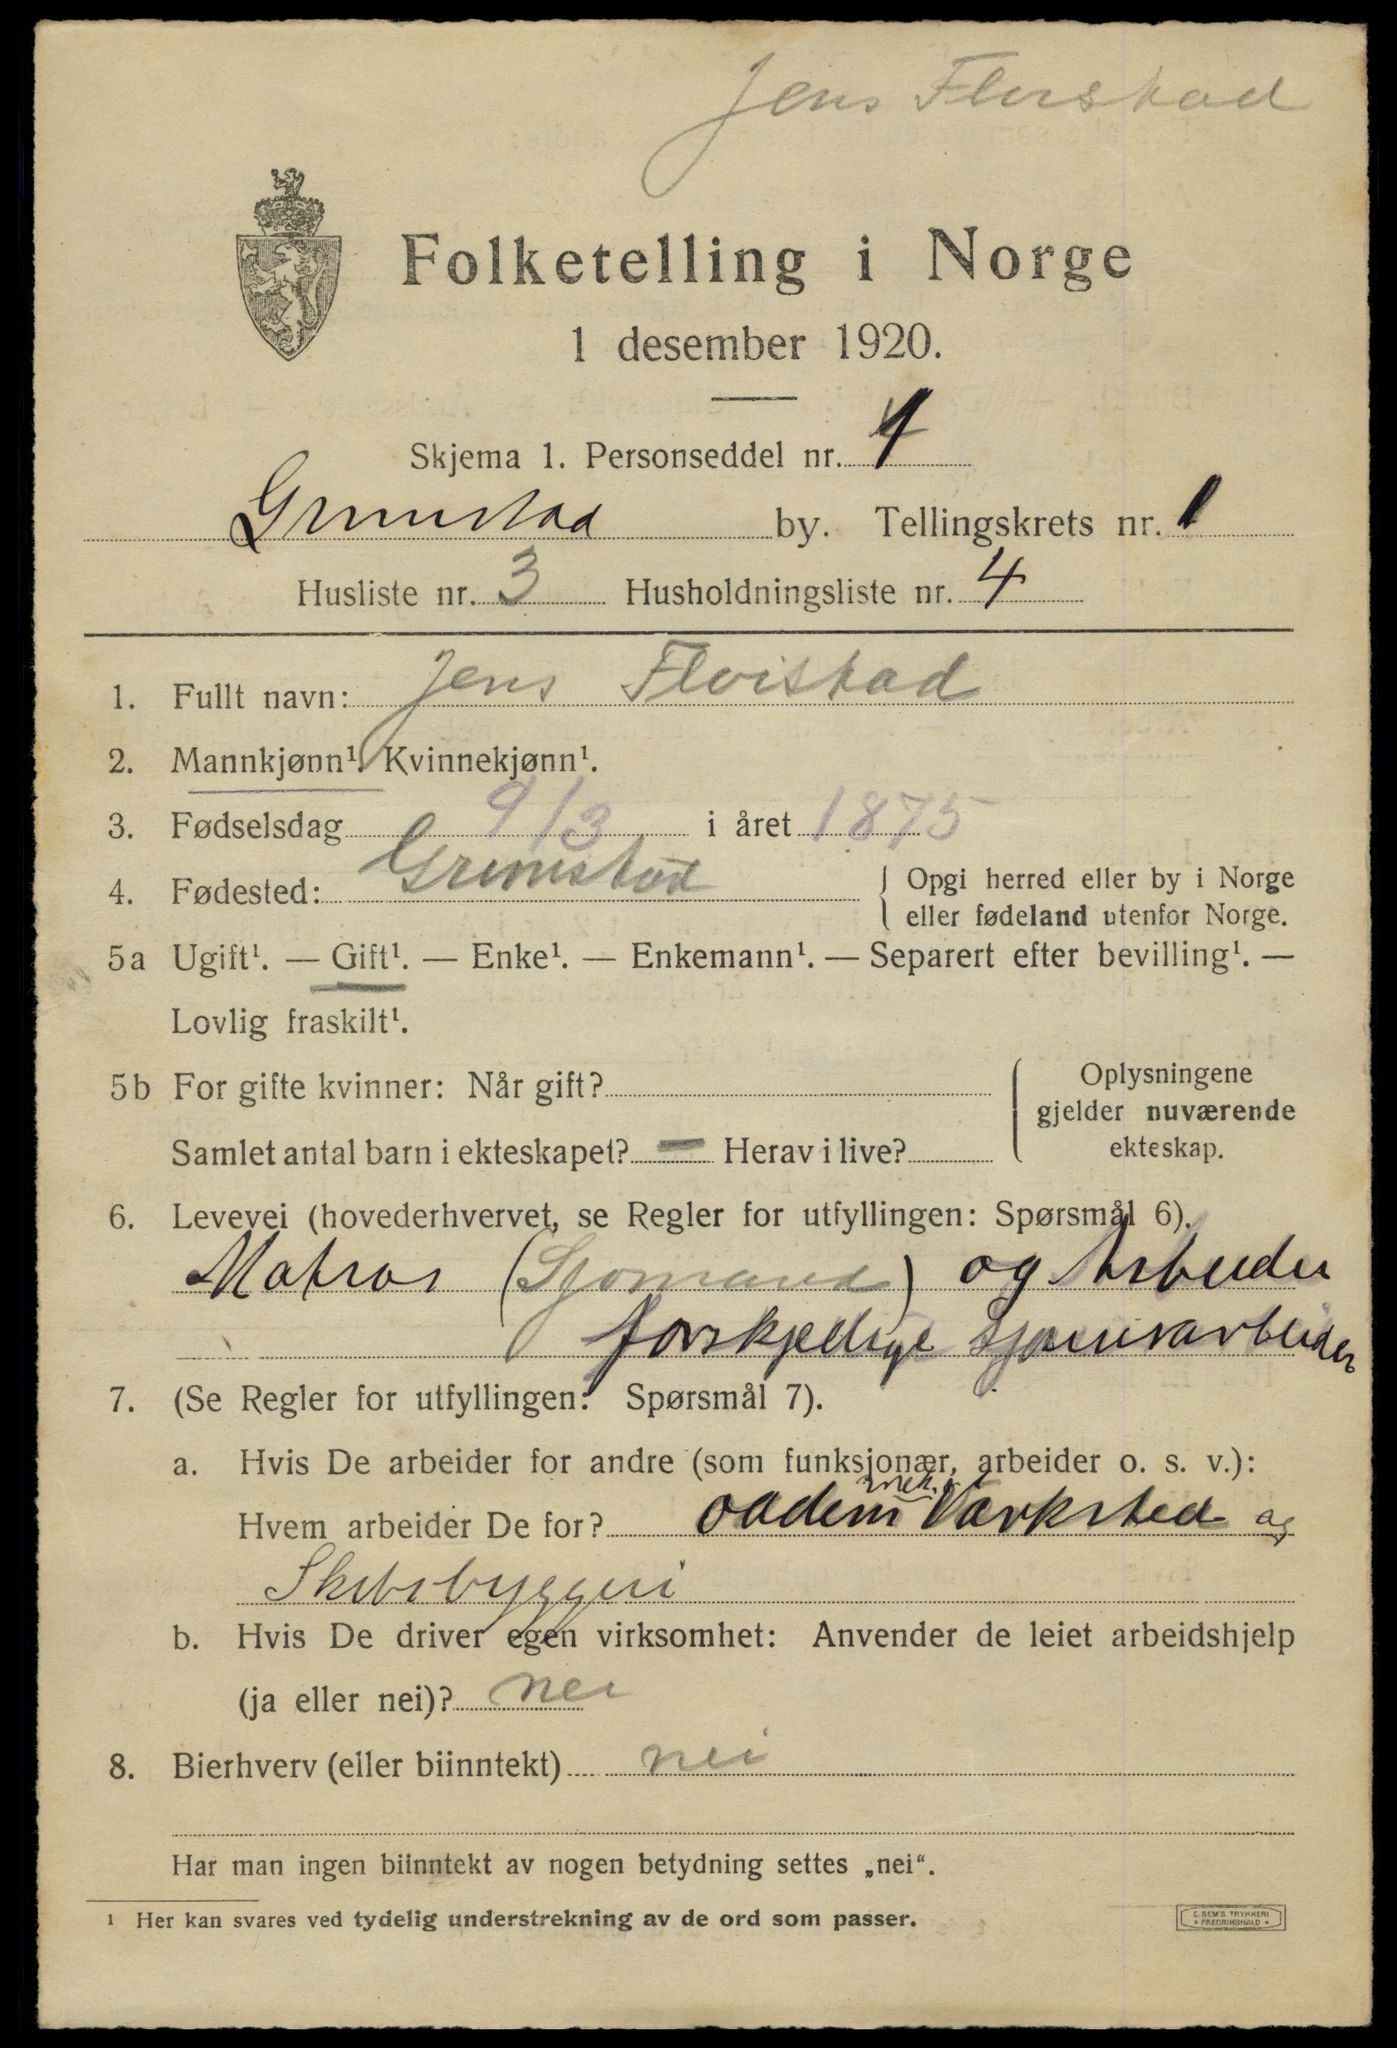 Jens Flvistad
Folketelling i Norge
1 desember 1920.
Skjema 1. Personseddel nr. 1
Grimstad by. Tellingskrets nr. 1
Husliste nr. 3 Husholdningsliste nr. 4
1. Fullt navn: Jens Flvistad
2. Mannkjønn¹. Kvinnekjønn¹.
3. Fødselsdag 9/3 i året 1875
4. Fødested: Grimstad { Opgi herred eller by i Norge
eller fødeland utenfor Norge.
5a Ugift¹. — Gift¹. — Enke¹. — Enkemann¹. — Separert efter bevilling¹. —
Lovlig fraskilt¹.
5b For gifte kvinner: Når gift? { Oplysningene
gjelder nuværende
ekteskap.
Samlet antal barn i ekteskapet? — Herav i live?
6. Levevei (hovederhvervet, se Regler for utfyllingen: Spørsmål 6).
Matros (Sjømand) og Arbeider
forskjedlige
7. (Se Regler for utfyllingen: Spørsmål 7).
a. Hvis De arbeider for andre (som funksjonær, arbeider o. s. v.):
mek.
Hvem arbeider De for? Værksted og
Skibsbyggeri
b. Hvis De driver egen virksomhet: Anvender de leiet arbeidshjelp
(ja eller nei)? nei
8. Bierhverv (eller biinntekt) nei
Har man ingen biinntekt av nogen betydning settes „nei“.
¹ Her kan svares ved tydelig understrekning av de ord som passer.
E. SEM'S TRYKKERI
* FREDRIKSHALD *